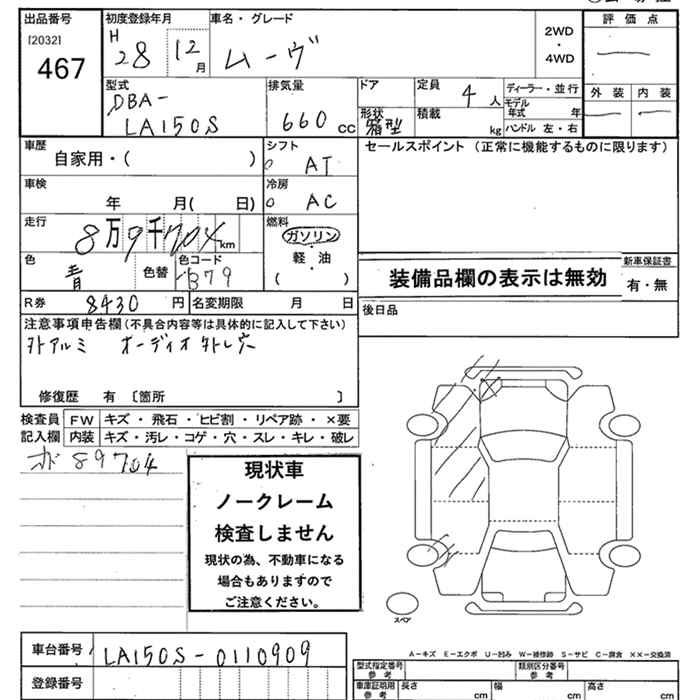 出品番号
[2032]
467
初度登録年月
H 28 12月
車名・グレード
ムーヴ
2WD
・
4WD
評価点
外装 内装
型式
DBA-
LA150S
排気量
660 cc
ドア
形状
箱型
定員 4人
積載 kg
ディーラー・並行
モデル年式 年
ハンドル 左・右
車歴
自家用・( )
シフト
AT
セールスポイント (正常に機能するものに限ります)
車検
年 月( 日)
冷房
AC
走行
8万9千704km
燃料
ガソリン
・
軽油
・
( )
色
青
色替
色コード
B79
装備品欄の表示は無効
新車保証書
有・無
R券 8430円
名変期限 月 日
後日品
注意事項申告欄(不具合内容等は具体的に記入して下さい)
外アルミ オーディオ外レ穴
修復歴 有 〔箇所 〕
検査員記入欄
FW キズ・飛石・ヒビ割・リペア跡・×要
内装 キズ・汚レ・コゲ・穴・スレ・キレ・破レ
89704
現状車
ノークレーム
検査しません
現状の為、不動車になる
場合もありますので
ご注意ください。
スペア
A-キズ E-エクボ U-凹み W-補修跡 S-サビ C-腐食 ××-交換済
車台番号 LA150S-0110909
登録番号
型式指定番号
参考
類別区分番号
参考
車庫証明用
参考
長さ cm
幅 cm
高さ cm